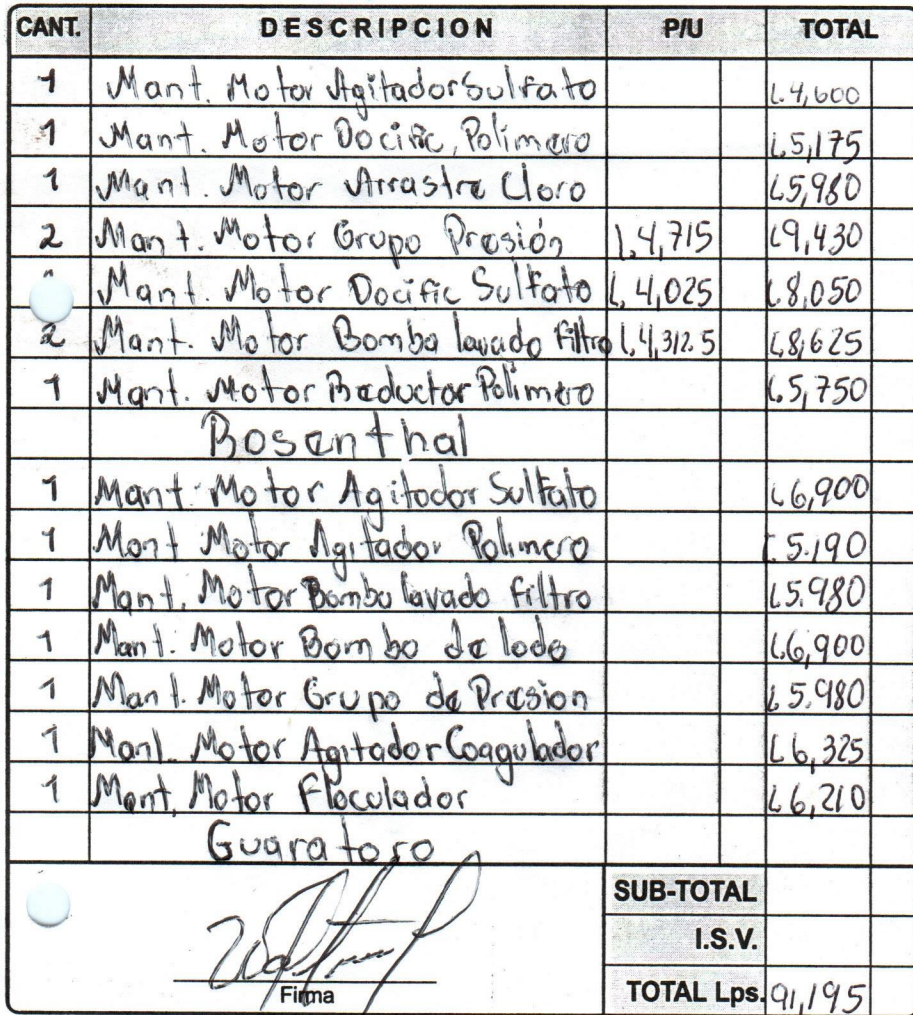 CANT. DESCRIPCION P/U TOTAL
1 Mant. Motor Agitador Sulfato L.4,600
1 Mant. Motor Docific. Polimero L5,175
1 Mant. Motor Arrastre Cloro L5,980
2 Mant. Motor Grupo Presión L.4,715 L9,430
Mant. Motor Docific Sulfato L.4,025 L8,050
2 Mant. Motor Bomba lavado filtro L.4,312.5 L8,625
1 Mant. Motor Reductor Polimero L5,750
Rosenthal
1 Mant. Motor Agitador Sulfato L6,900
1 Mant Motor Agitador Polimero L5.190
1 Mant. Motor Bomba lavado filtro L5.980
1 Mant. Motor Bomba de lodo L6,900
1 Mant. Motor Grupo de Presion L5.980
1 Mant. Motor Agitador Coagulador L6,325
1 Mant. Motor Floculador L6,210
Guaratoro
SUB-TOTAL
I.S.V.
Firma TOTAL Lps. 91,195